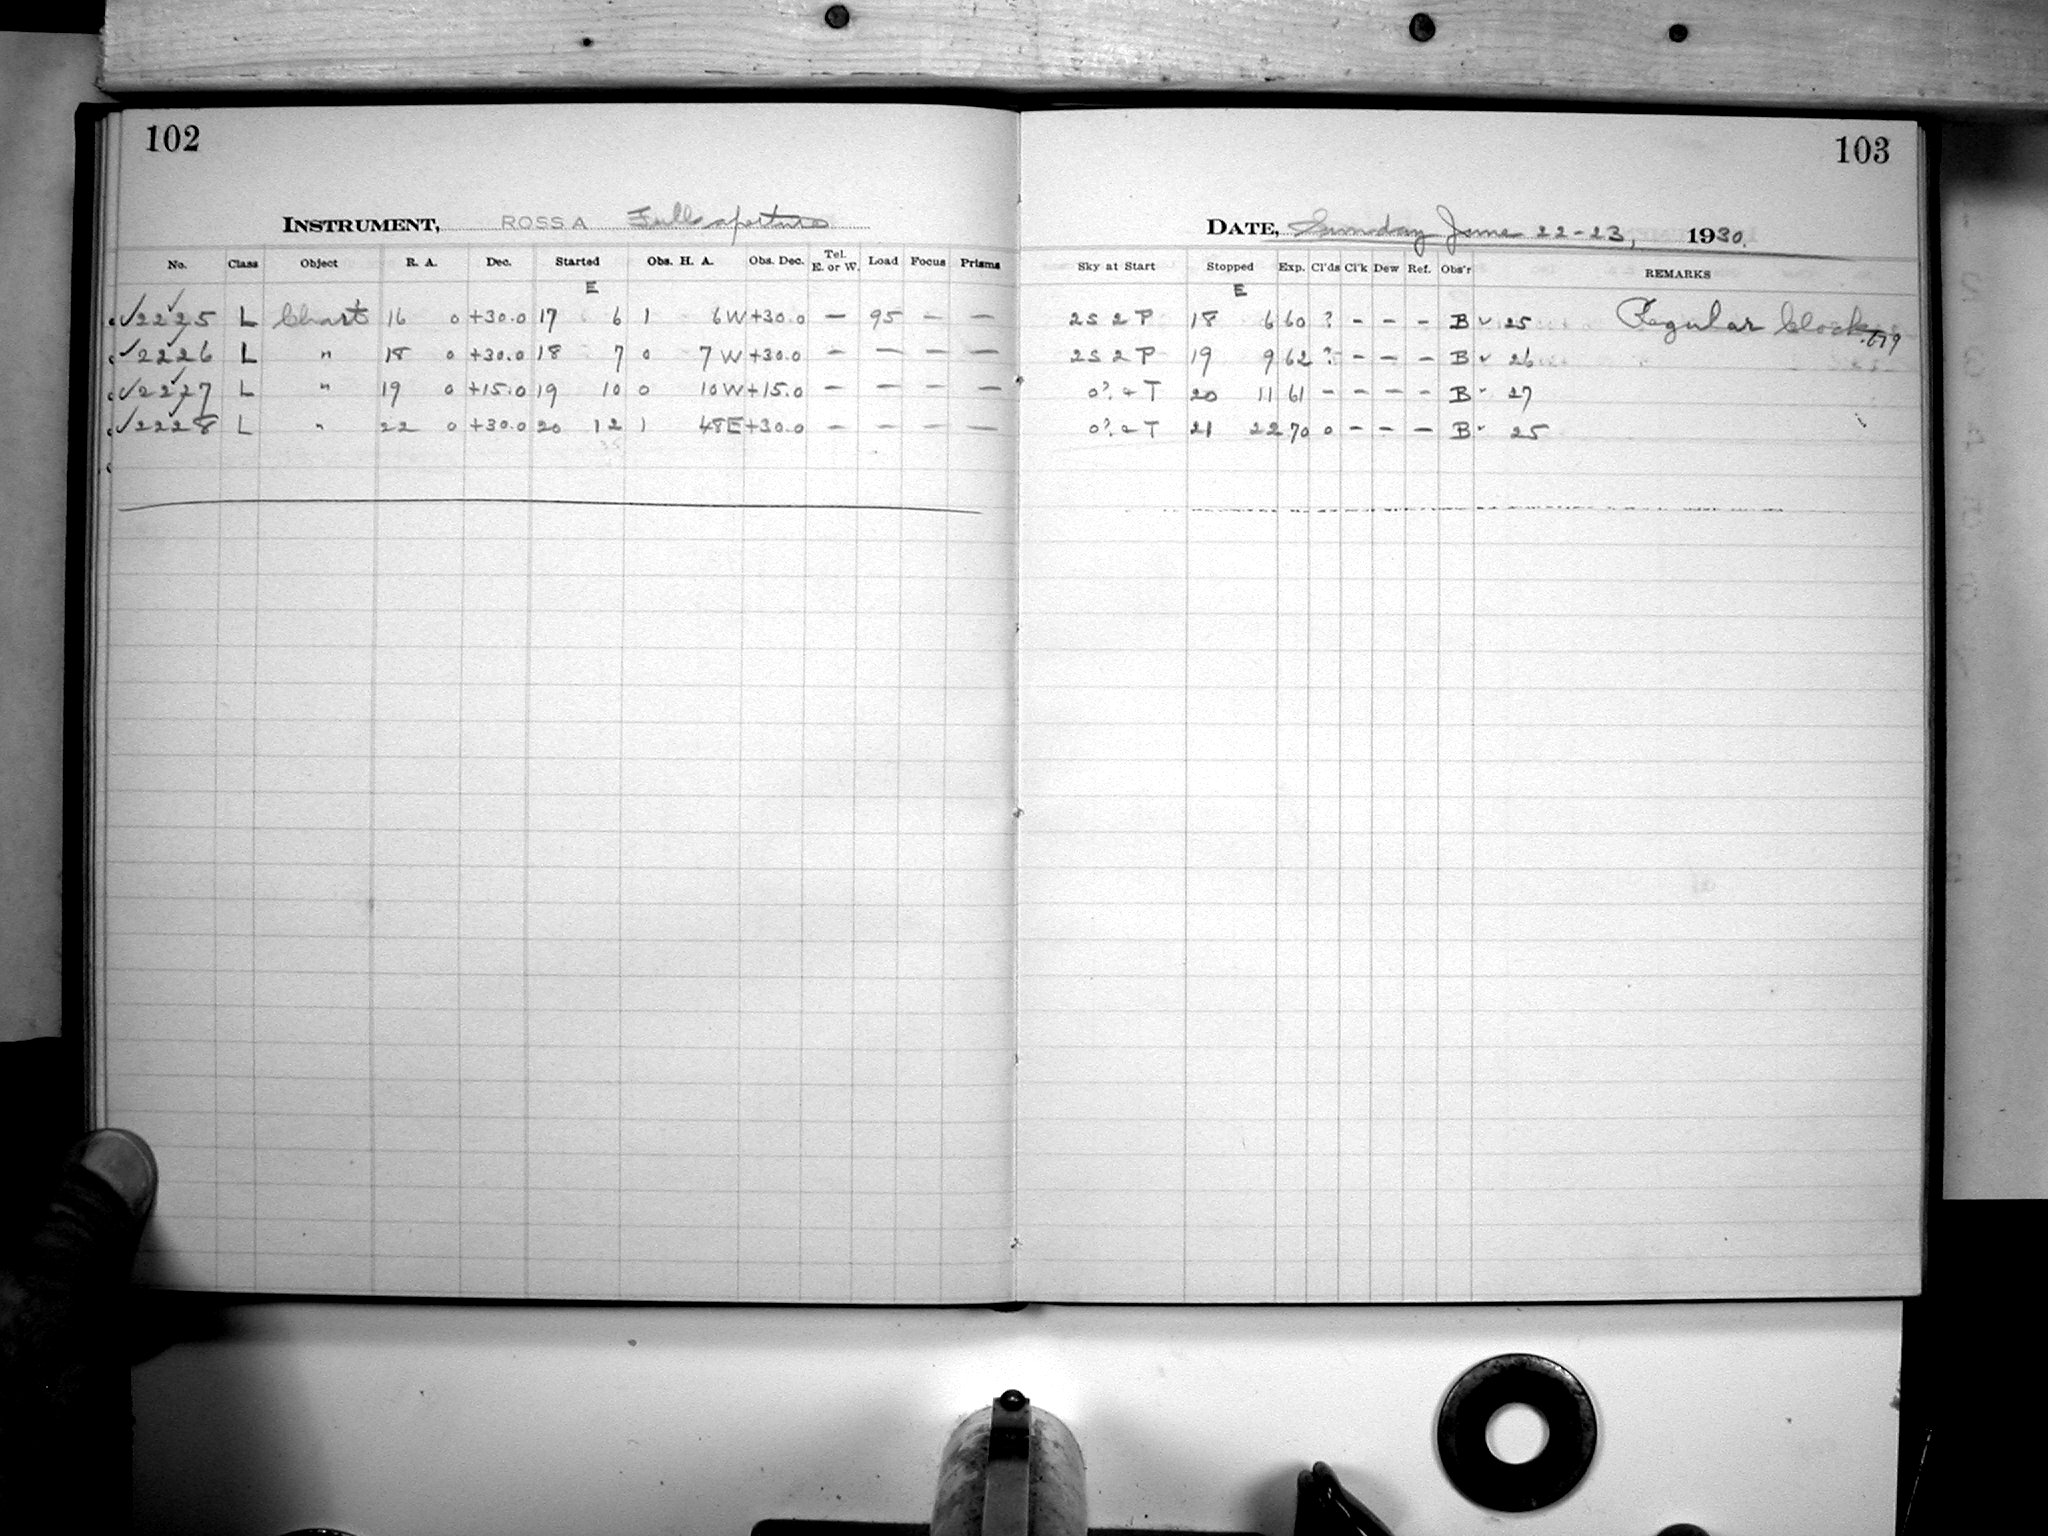 102
INSTRUMENT, ROSS A Full aperture
No. Class Object R. A. Dec. Started Obs. H. A. Obs. Dec. Tel. E. or W. Load Focus Prisms
E
✓2225 L Chart 16 0 +30.0 17 6 1 6W +30.0 — 95 — —
✓2226 L " 18 0 +30.0 18 7 0 7W +30.0 — — — —
✓2227 L " 19 0 +15.0 19 10 0 10W +15.0 — — — —
✓2228 L " 22 0 +30.0 20 12 1 48E +30.0 — — — —
103
DATE, Sunday June 22-23, 1930.
Sky at Start Stopped Exp. Cl'ds Cl'k Dew Ref. Obs'r REMARKS
E
2S 2 P 18 6 60 ? - - - B ✓ 25 Regular Clock
2S 2 P 19 9 62 ? - - - B ✓ 26
0? T 20 11 61 - - - - B ✓ 27
0? T 21 22 70 0 - - - B ✓ 25